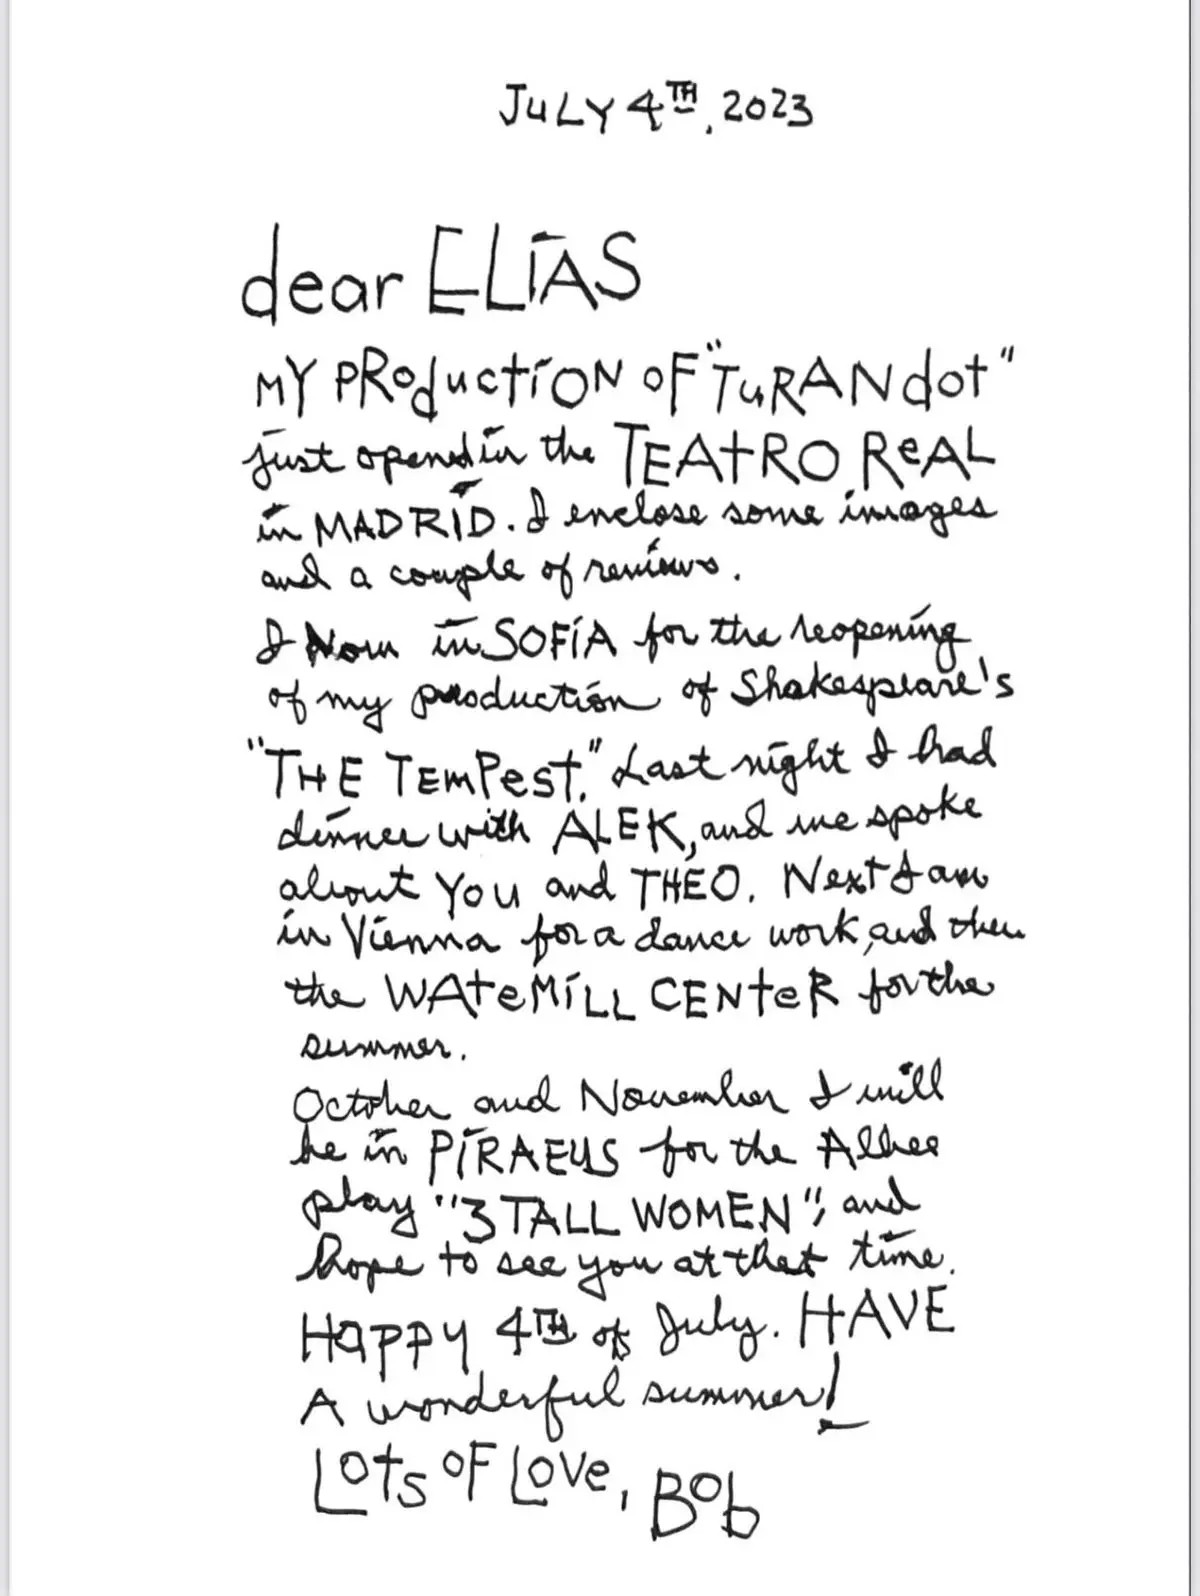 JULY 4TH, 2023
dear ELIAS
MY PRODUCTION OF "TURANdot"
just opened in the TEATRO REAL
in MADRID. I enclose some images
and a couple of reviews.
I Now in SOFIA for the reopening
of my production of Shakespeare's
"THE TEMPEST." Last night I had
dinner with ALEK, and we spoke
about YOU and THEO. Next I am
in Vienna for a dance work, and then
the WATEMILL CENTER for the
summer.
October and November I will
be in PIRAEUS for the Albee
play "3 TALL WOMEN", and
hope to see you at that time.
HAPPY 4TH of July. HAVE
A wonderful summer!
LOTS OF LOVE, BOB